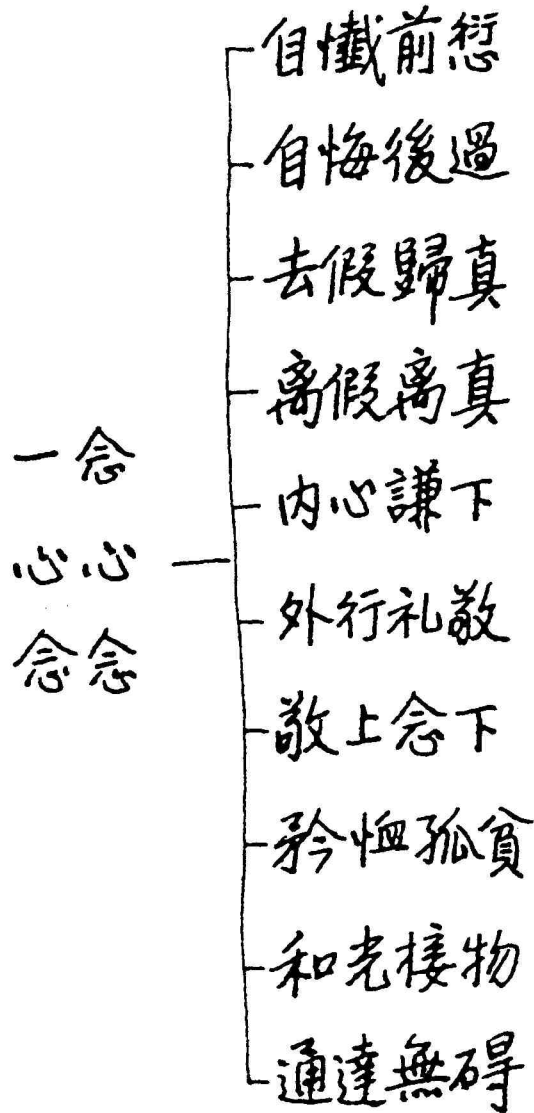 一念
心心
念念
自懺前愆
自悔後過
去假歸真
离假离真
内心謙下
外行礼敬
敬上念下
矜恤孤貧
和光接物
通達無碍